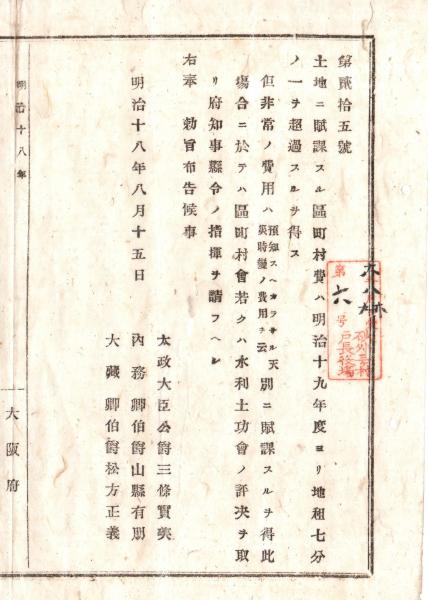 第貳拾五號
土地ニ賦課スル區町村費ハ明治十九年度ヨリ地租七分
ノ一ヲ超過スルヲ得ス
但非常ノ費用ハ預知スヘカラサル天災時變ノ費用ヲ云別ニ賦課スルヲ得此
塲合ニ於テハ區町村會若クハ水利土功會ノ評决ヲ取
リ府知事縣令ノ指揮ヲ請フヘシ
右奉 勅旨布告候事
明治十八年八月十五日
太政大臣公爵三條實美
內務卿伯爵山縣有朋
大藏卿伯爵松方正義
第六号
戸長役塲
明治十八年
大阪府